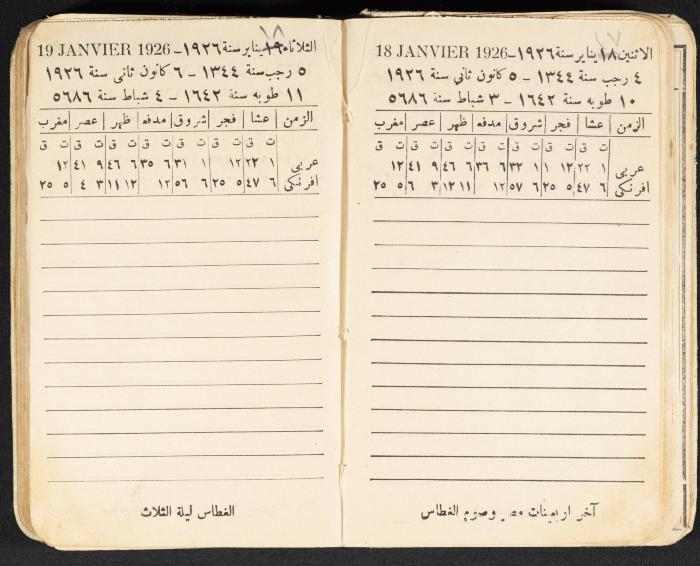 ١٧
الاثنين ١٨ يناير سنة ١٩٢٦ — 18 JANVIER 1926
٤ رجب سنة ١٣٤٤ - ٥ كانون ثانى سنة ١٩٢٦
١٠ طوبه سنة ١٦٤٢ - ٣ شباط سنة ٥٦٨٦
الزمن عشا فجر شروق مدفه ظهر عصر مغرب
ت ق ت ق ت ق ت ق ت ق ت ق ت ق
عربى ١ ٢٢ ١٢ ١ ١ ٣٢ ٦ ٣٦ ٦ ٤٦ ٩ ٤١ ١٢
افرنكى ٦ ٤٧ ٥ ٢٥ ٦ ٥٧ ١٢ ١١ ١٢ ٣ ٦ ٥ ٢٥
آخر اربعينات مصر وصوم الغطاس
١٨
الثلاثاء ١٩ يناير سنة ١٩٢٦ — 19 JANVIER 1926
٥ رجب سنة ١٣٤٤ - ٦ كانون ثانى سنة ١٩٢٦
١١ طوبه سنة ١٦٤٢ - ٤ شباط سنة ٥٦٨٦
الزمن عشا فجر شروق مدفه ظهر عصر مغرب
ت ق ت ق ت ق ت ق ت ق ت ق ت ق
عربى ١ ٢٢ ١٢ ١ ٣١ ٦ ٣٥ ٦ ٤٦ ٩ ٤١ ١٢
افرنكى ٦ ٤٧ ٥ ٢٥ ٦ ٥٦ ١٢ ١٢ ١١ ٣ ٤ ٥ ٢٥
الغطاس ليلة الثلاث